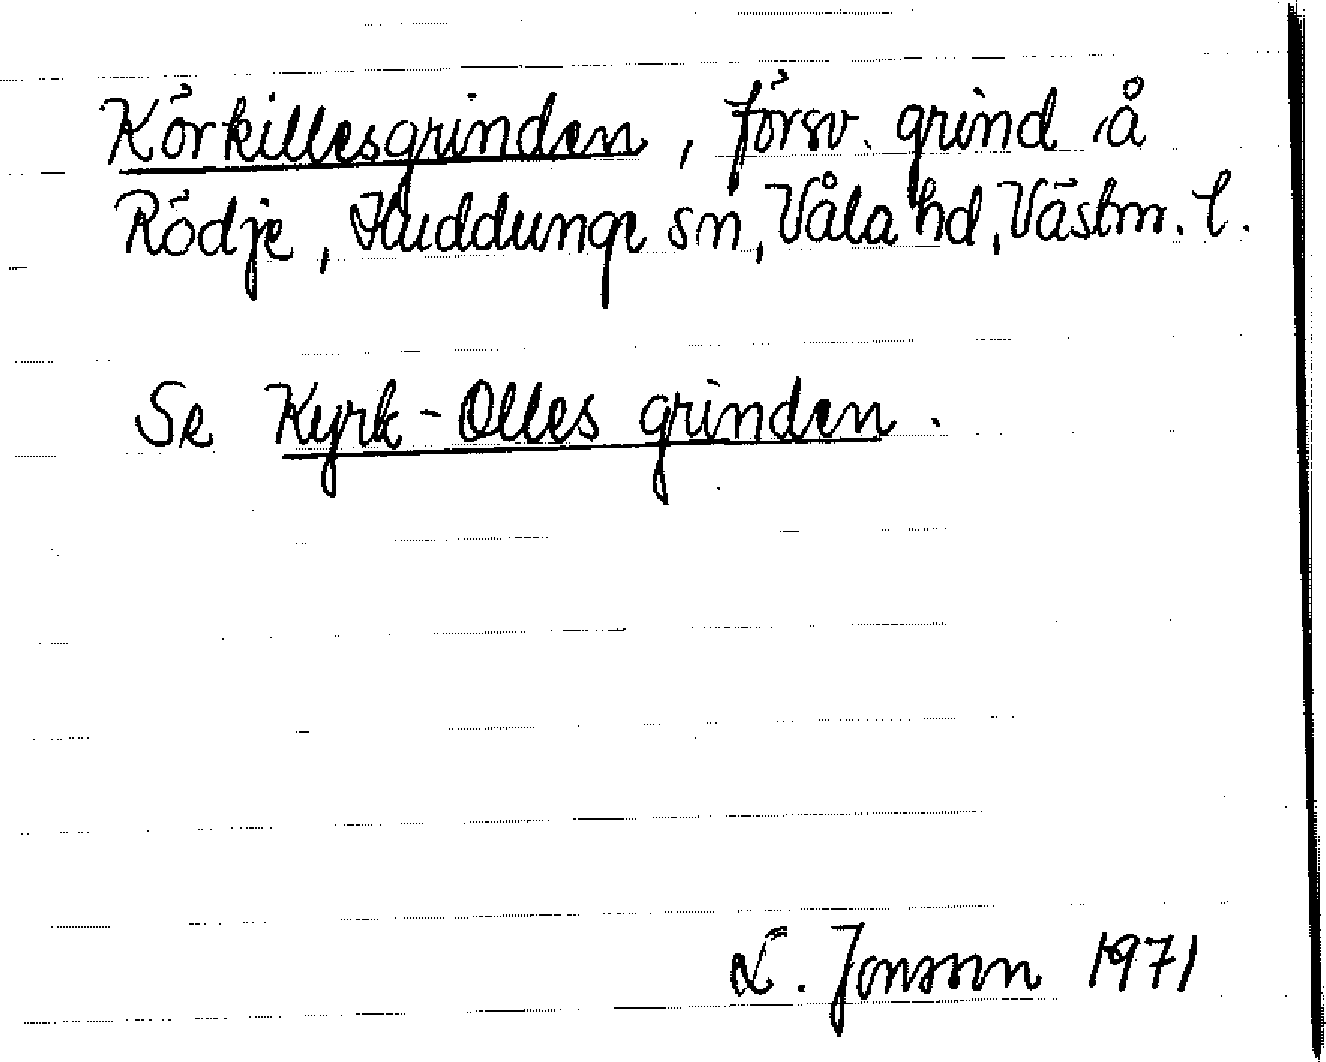 Körkillesgrinden, försv. grind å
Rödje, Huddunge sn, Våla hd, Västm. l.
Se Kyrk-Olles grinden.
L. Jonsson 1971